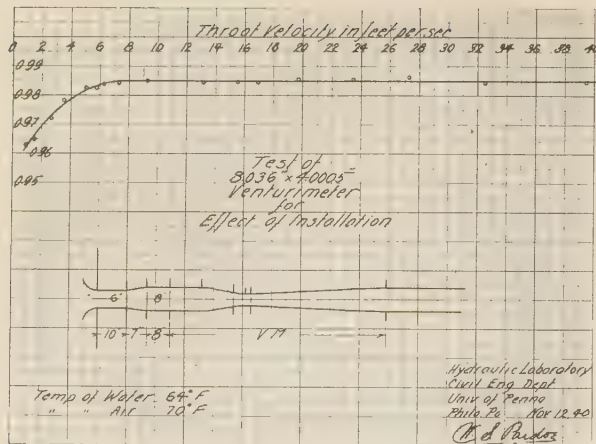 Throat Velocity in feet per sec
0 2 4 6 8 10 12 14 16 18 20 22 24 26 28 30 32 34 36 38 40
0.99
0.98
0.97
0.96
0.95
Test of
8.036" x 4.0005"
Venturimeter
for
Effect of Installation
6" 8"
10" 7" 8" V M
Temp of Water 64° F
" " Air 70° F
Hydraulic Laboratory
Civil Eng Dept
Univ of Penna
Phila Pa Nov 12 40
W S Pardoe